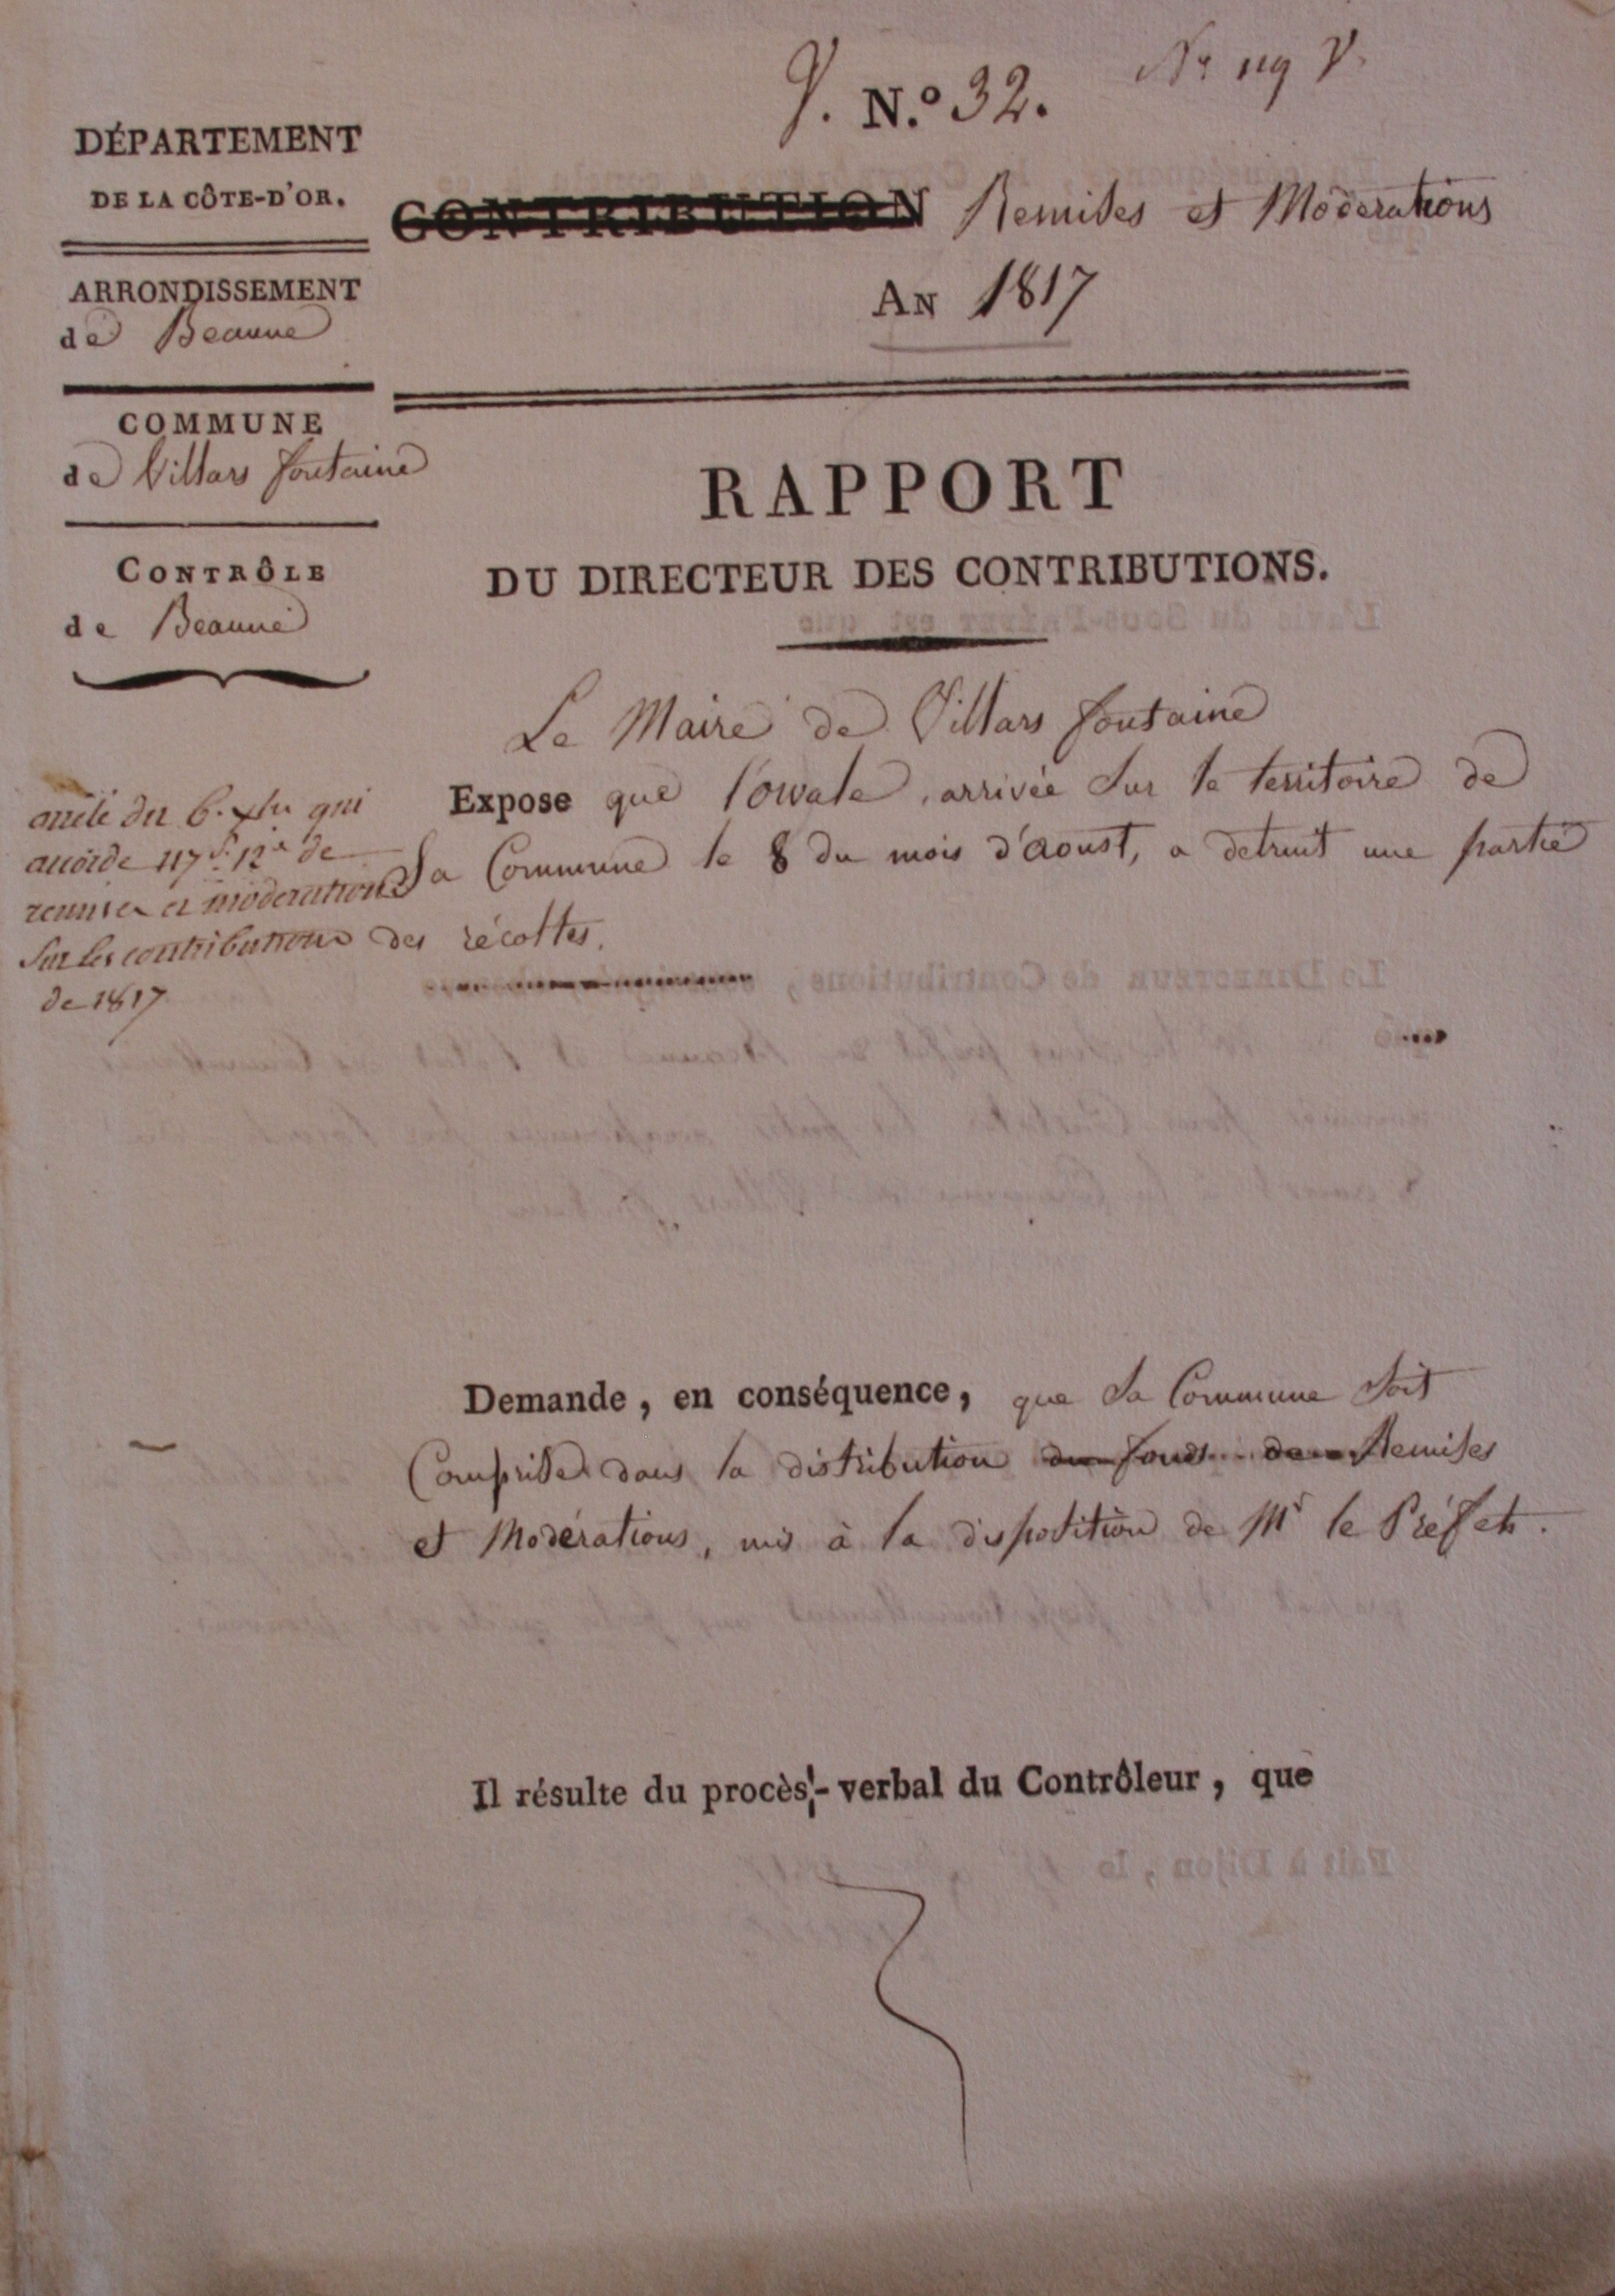 V. N.º 32. Nº 119 V.
DÉPARTEMENT
DE LA CÔTE-D'OR.
CONTRIBUTION Remises et Moderations
AN 1817
ARRONDISSEMENT
de Beaune
COMMUNE
de Villars fontaine
CONTRÔLE
de Beaune
RAPPORT
DU DIRECTEUR DES CONTRIBUTIONS.
Le Maire de Villars fontaine
Expose que l'orvale, arrivée sur le territoire de
sa Commune le 8 du mois d'aoust, a detruit une partie
des récoltes.
arrêté du 6. xbre qui
accorde 117 f. 12 c de
remise et moderation
sur les contributions
de 1817
Demande, en conséquence, que sa Commune soit
Comprise dans la distribution du fonds de Remises
et Modérations, mis à la disposition de Mr le Préfet.
Il résulte du procès-verbal du Contrôleur, que